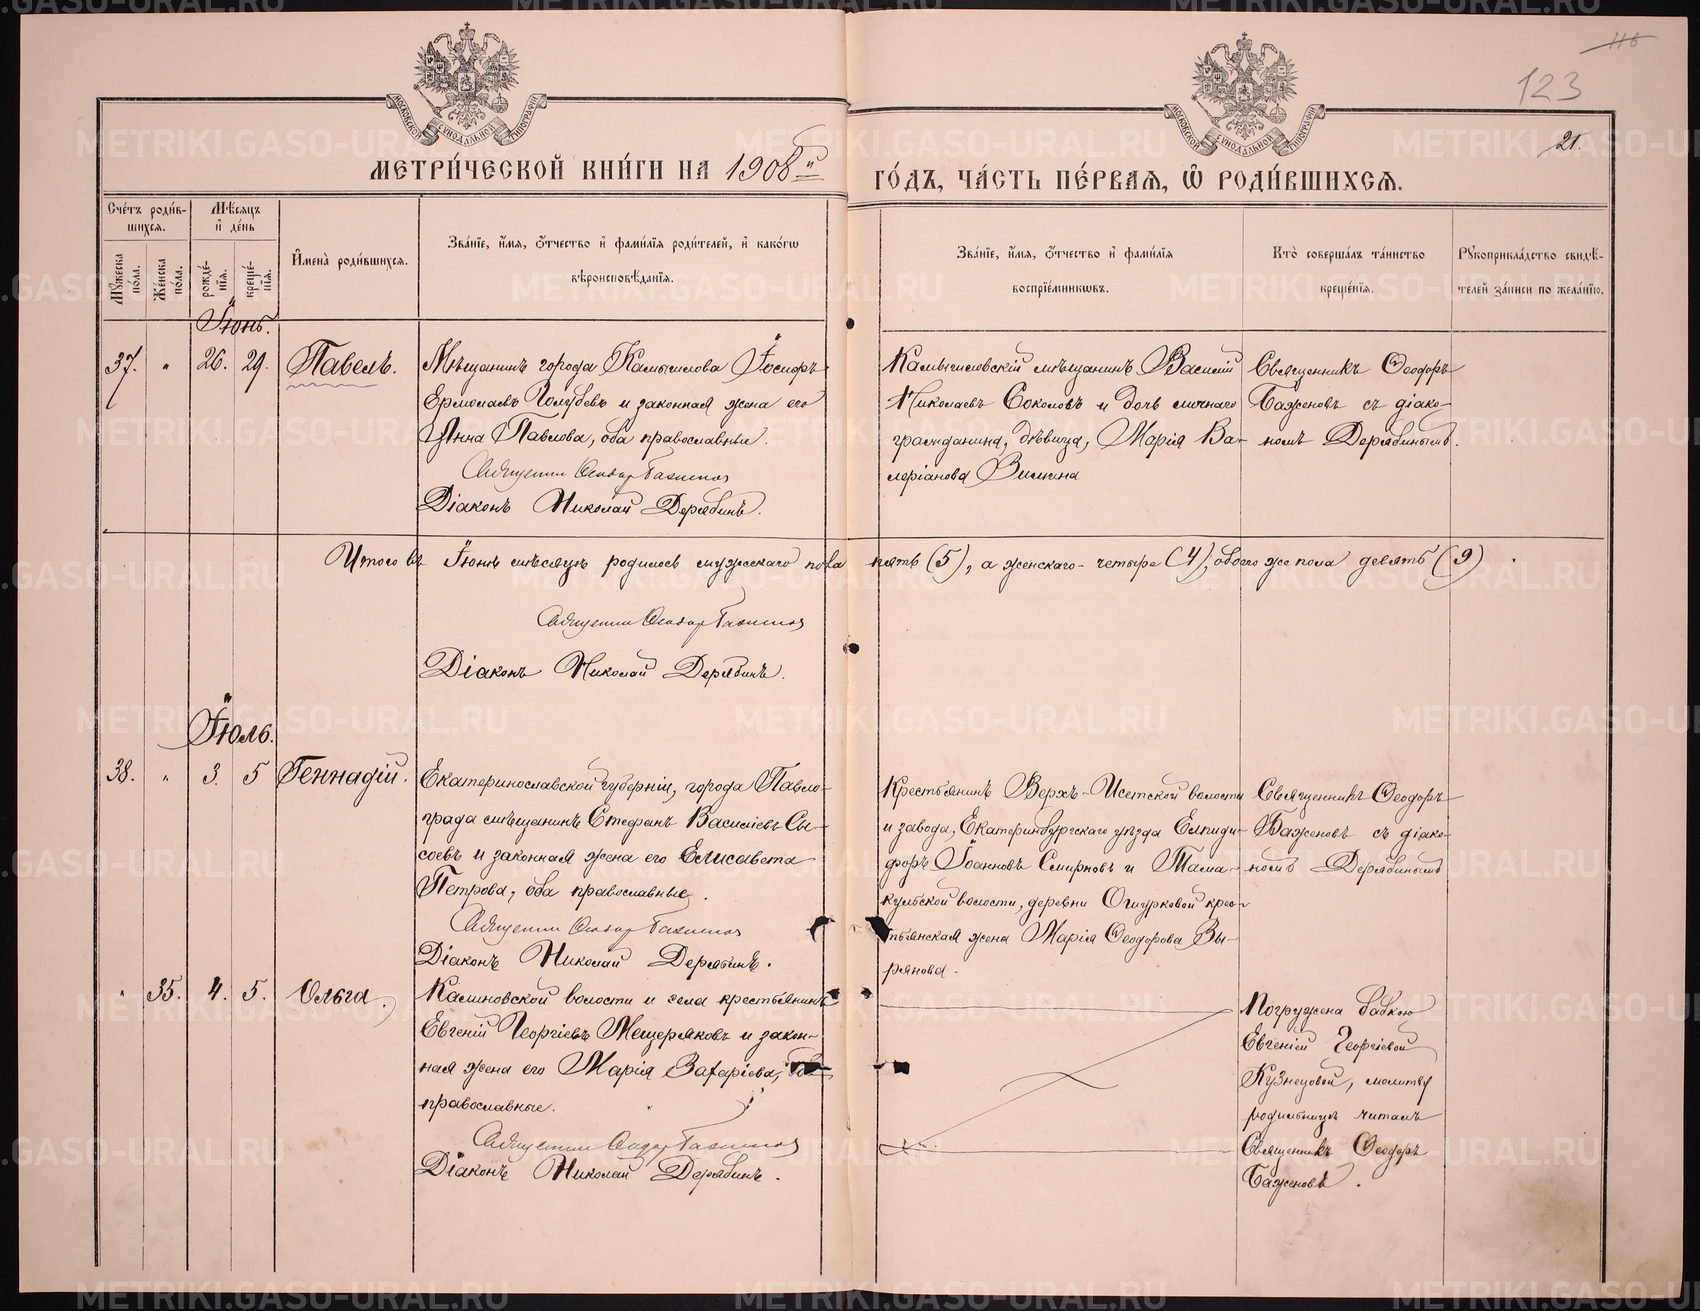 116
123
21.
МОСКОВСКОЙ СѴНОДАЛЬНОЙ ТИПОГРАФІИ
МОСКОВСКОЙ СѴНОДАЛЬНОЙ ТИПОГРАФІИ
МЕТРИ́ЧЕСКОЙ КНИ́ГИ НА 1908й
ГО́ДЪ, ЧА́СТЬ ПЕ́РВАЯ, Ѡ РОДИ́ВШИХСЯ.
Счétъ роди́в-
шихся.
Мѣ́сяцъ
и де́нь
Мꙋ́жеска
по́ла.
Же́нска
по́ла.
рожде́-
нїя.
креще́-
нїя.
Имена̀ роди́вшихся.
Зва́нїе, и́мя, о́тчество и фами́лїя роди́телей, и како́гѡ
вѣроисповѣ́данїя.
Зва́нїе, и́мя, о́тчество и фами́лїя
воспрїе́мникѡвъ.
Кто̀ соверша́лъ та́инство
креще́нїя.
Рꙋкоприкла́дство свидѣ́-
телей за́писи по жела́нїю.
Іюнь.
37. " 26. 29. Павелъ.
Мѣщанинъ города Камышлова Іосифъ
Ермолаевъ Голубевъ и законная жена его
Анна Павлова, оба православные.
Священник Феодор Баженов
Діаконъ Николай Дерябинъ.
Камышловскій мѣщанинъ Василій
Николаевъ Соколовъ и дочь личнаго
гражданина, дѣвица, Марія Ва-
леріанова
Священникъ Ѳеодоръ
Баженовъ съ діако-
номъ Дерябинымъ.
Итого въ Іюнѣ мѣсяцѣ родилось мужескаго пола пять (5), а женскаго - четыре (4), обоего же пола девять (9)
Священник Феодор Баженов
Діаконъ Николай Дерябинъ.
Іюль.
38. " 3. 5 Геннадій.
Екатеринославской губерніи, города Павло-
града мѣщанинъ Стефанъ Василіевъ Сы-
соевъ и законная жена его Елисавета
Петрова, оба православные.
Священник Феодор Баженов
Діаконъ Николай Дерябинъ.
Крестьянинъ Верхъ-Исетской волости
и завода, Екатеринбургскаго уѣзда Елпиди-
форъ Іоанновъ Смирновъ и Тама-
кульской волости, деревни Огурковой крес-
тьянская жена Марія Ѳеодорова Вы-
рянова.
Священникъ Ѳеодоръ
Баженовъ съ діако-
номъ Дерябинымъ
" 35. 4. 5. Ольга.
Калиновской волости и села крестьянинъ
Евгеній Георгіевъ Мещеряковъ и закон-
ная жена его Марія Захаріева, оба
православные.
Священник Феодор Баженов
Діаконъ Николай Дерябинъ.
Погружена бабкою
Евгеніей Георгіевой
Кузнецовой, молитву
родильницѣ читалъ
Священникъ Ѳеодоръ
Баженовъ.
METRIKI.GASO-URAL.RU